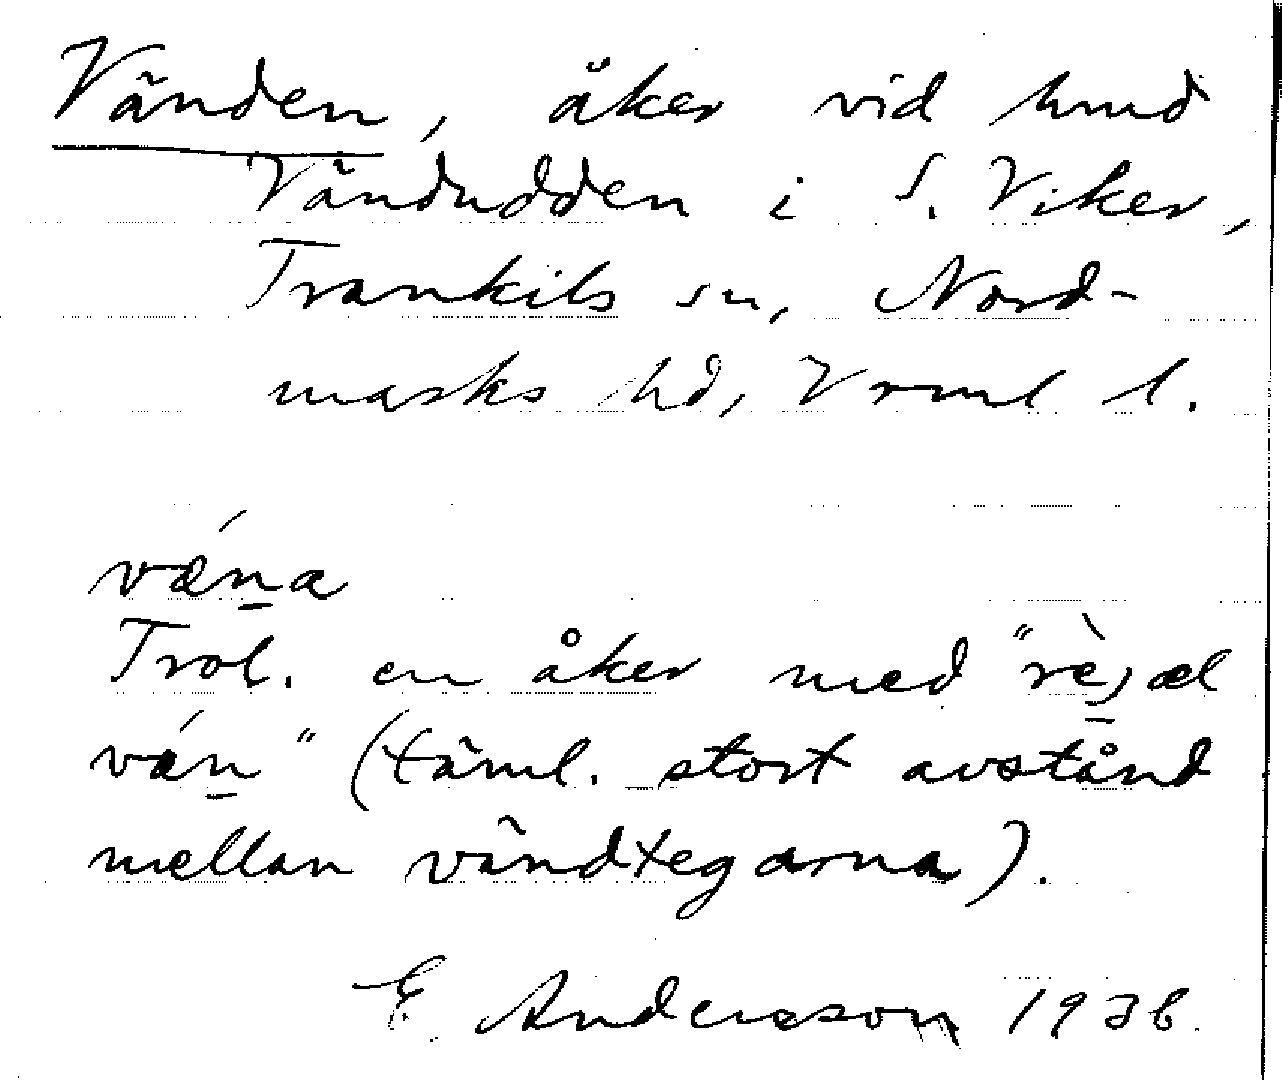 Vänden, åker vid hmd
Vändudden i S. Viker,
Trankils sn, Nord-
marks hd, Vrml l.
væ´n̲a
Trol. en åker med "rè̲jæl
væ´n̲" (täml. stort avstånd
mellan vändtegarna).
E Andersson 1936.